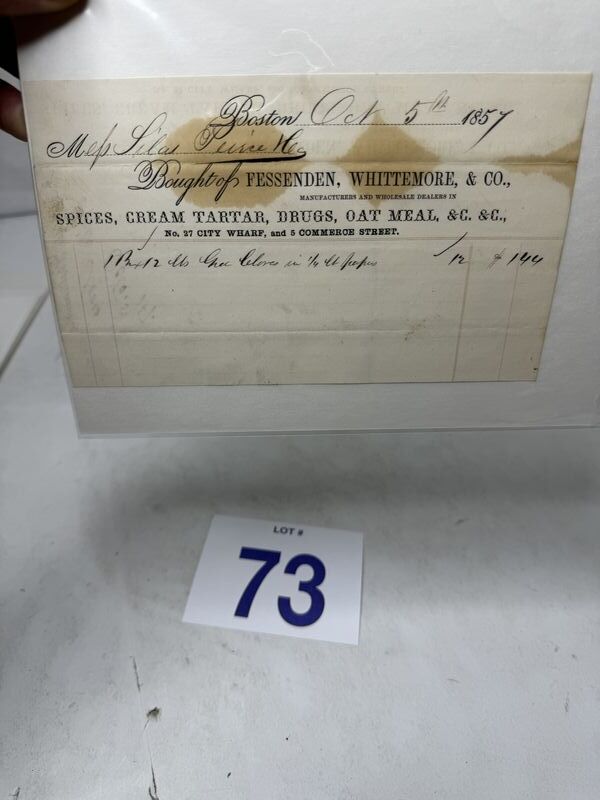 Boston Oct 5th 1857
Mess Silas Peirce & Co
Bought of FESSENDEN, WHITTEMORE, & CO.,
MANUFACTURERS AND WHOLESALE DEALERS IN
SPICES, CREAM TARTAR, DRUGS, OAT MEAL, &C. &C.,
No. 27 CITY WHARF, and 5 COMMERCE STREET.
1 Bx 12 lbs Cloves in 1/4 lb papers 12 $ 144
LOT #
73